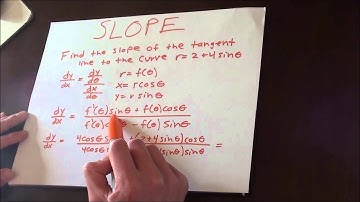 SLOPE
Find the slope of the tangent
line to the curve r=2+4sinθ
dy/dx = dy/dθ / dx/dθ r=f(θ)
x=rcosθ
y=rsinθ
dy/dx = f'(θ)sinθ + f(θ)cosθ / f'(θ)c - f(θ) Sinθ
dy/dx = 4cosθ s 2+4sinθ)cosθ / 4cosθ sinθ)sinθ =